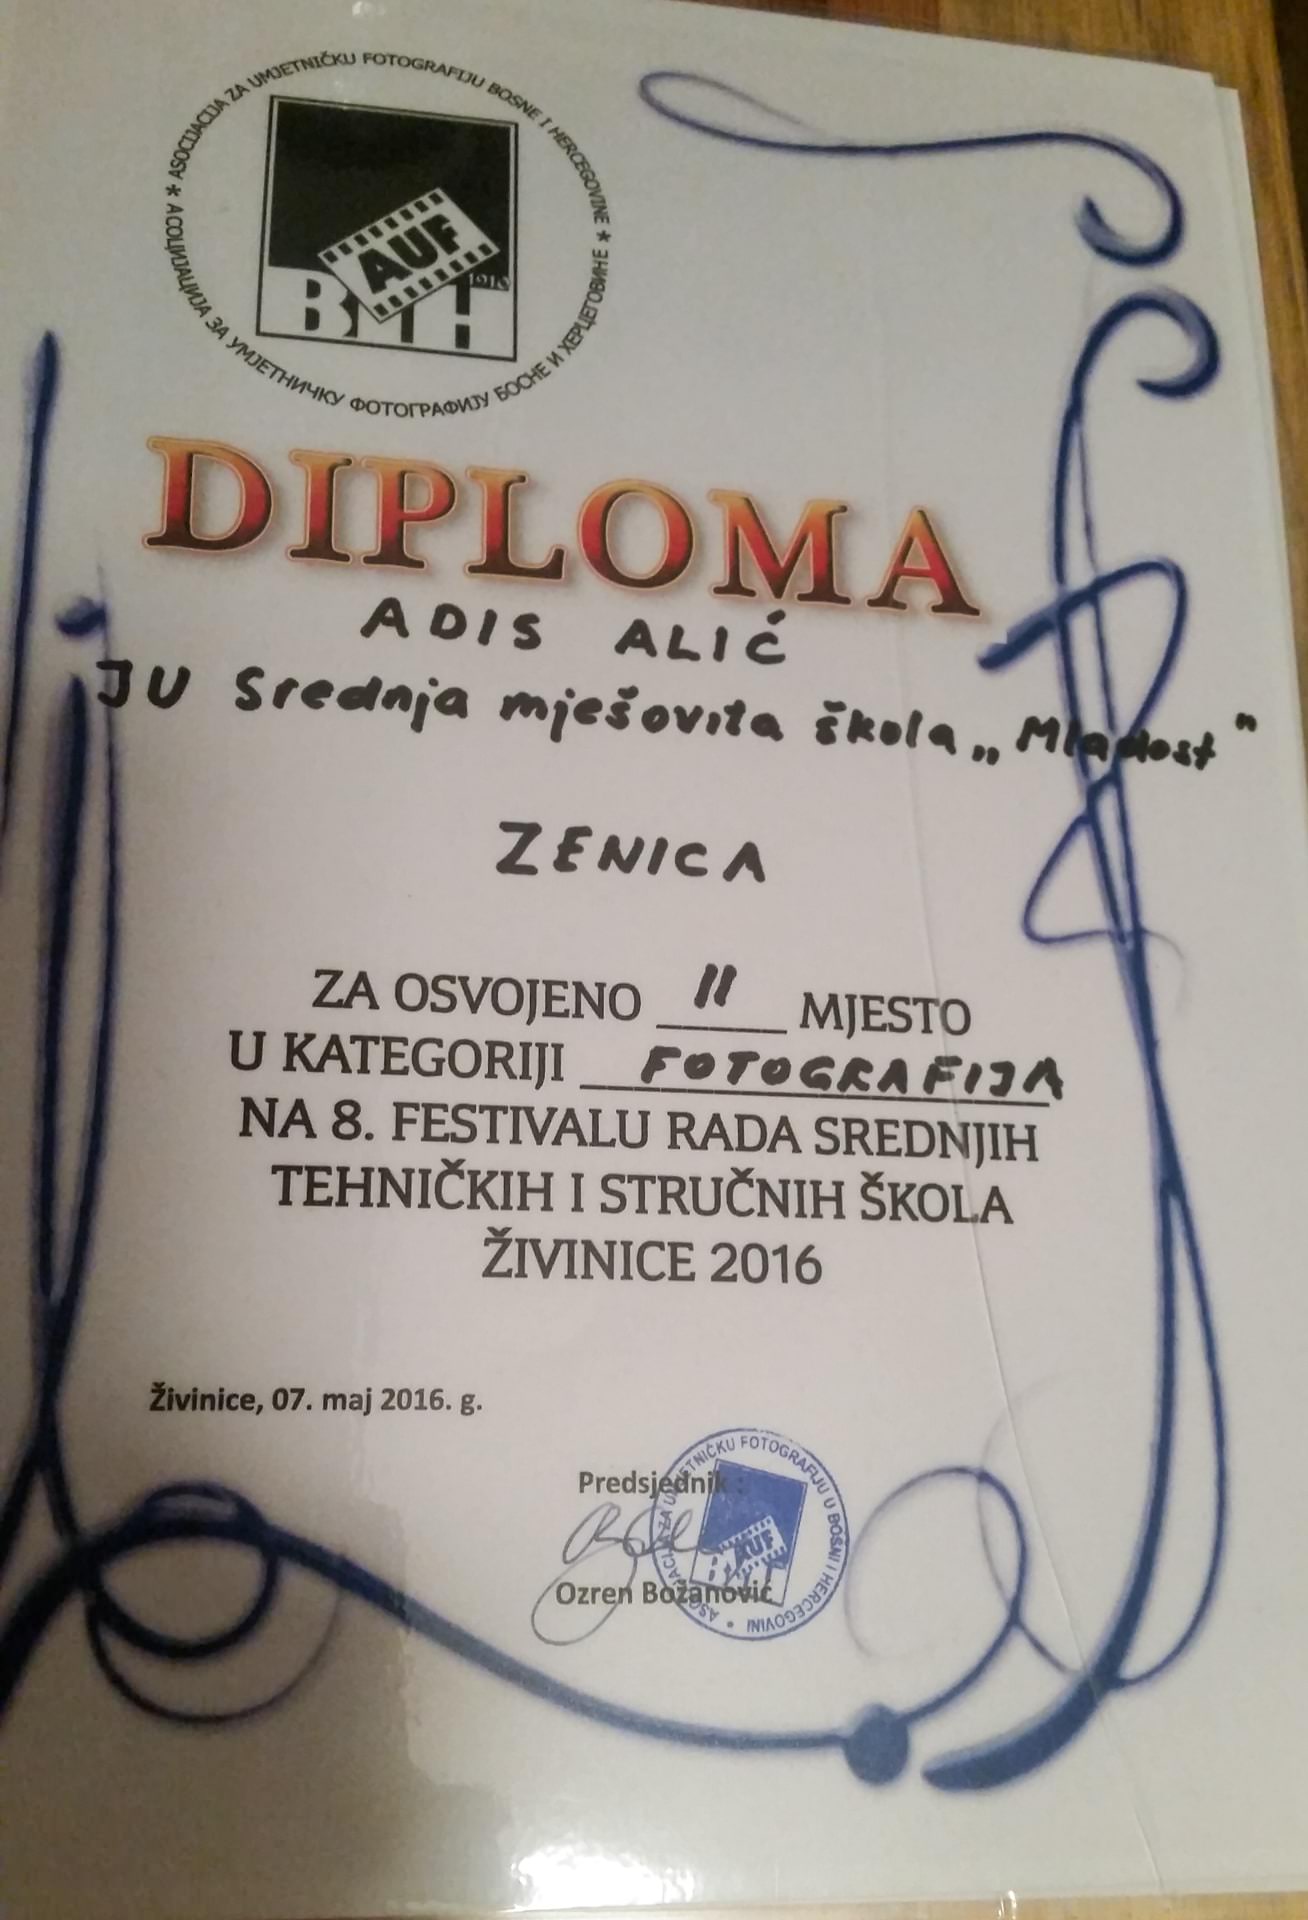 * ASOCIJACIJA ZA UMJETNIČKU FOTOGRAFIJU BOSNE I HERCEGOVINE *
АСОЦИЈАЦИЈА ЗА УМЈЕТНИЧКУ ФОТОГРАФИЈУ БОСНЕ И ХЕРЦЕГОВИНЕ
AUF
BIH
DIPLOMA
ADIS ALIĆ
JU Srednja mješovita škola „Mladost"
ZENICA
ZA OSVOJENO II MJESTO
U KATEGORIJI FOTOGRAFIJA
NA 8. FESTIVALU RADA SREDNJIH
TEHNIČKIH I STRUČNIH ŠKOLA
ŽIVINICE 2016
Živinice, 07. maj 2016. g.
Predsjednik :
Ozren Božanović
ASOCIJACIJA ZA UMJETNIČKU FOTOGRAFIJU U BOSNI I HERCEGOVINI •
AUF